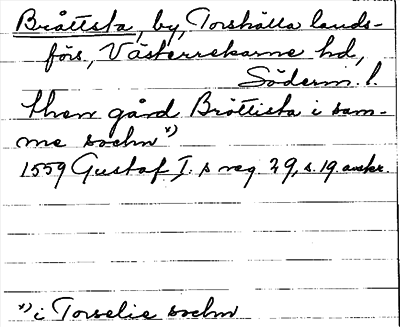 Bråttsta, by, Torshälla lands-
förs., Västerrekarne hd,
Söderm. l.
then gård Bröttista i sam-
me sochn *)
1559 Gustaf I. s reg. 29, s. 19. avskr.
*) i Torselie sochn